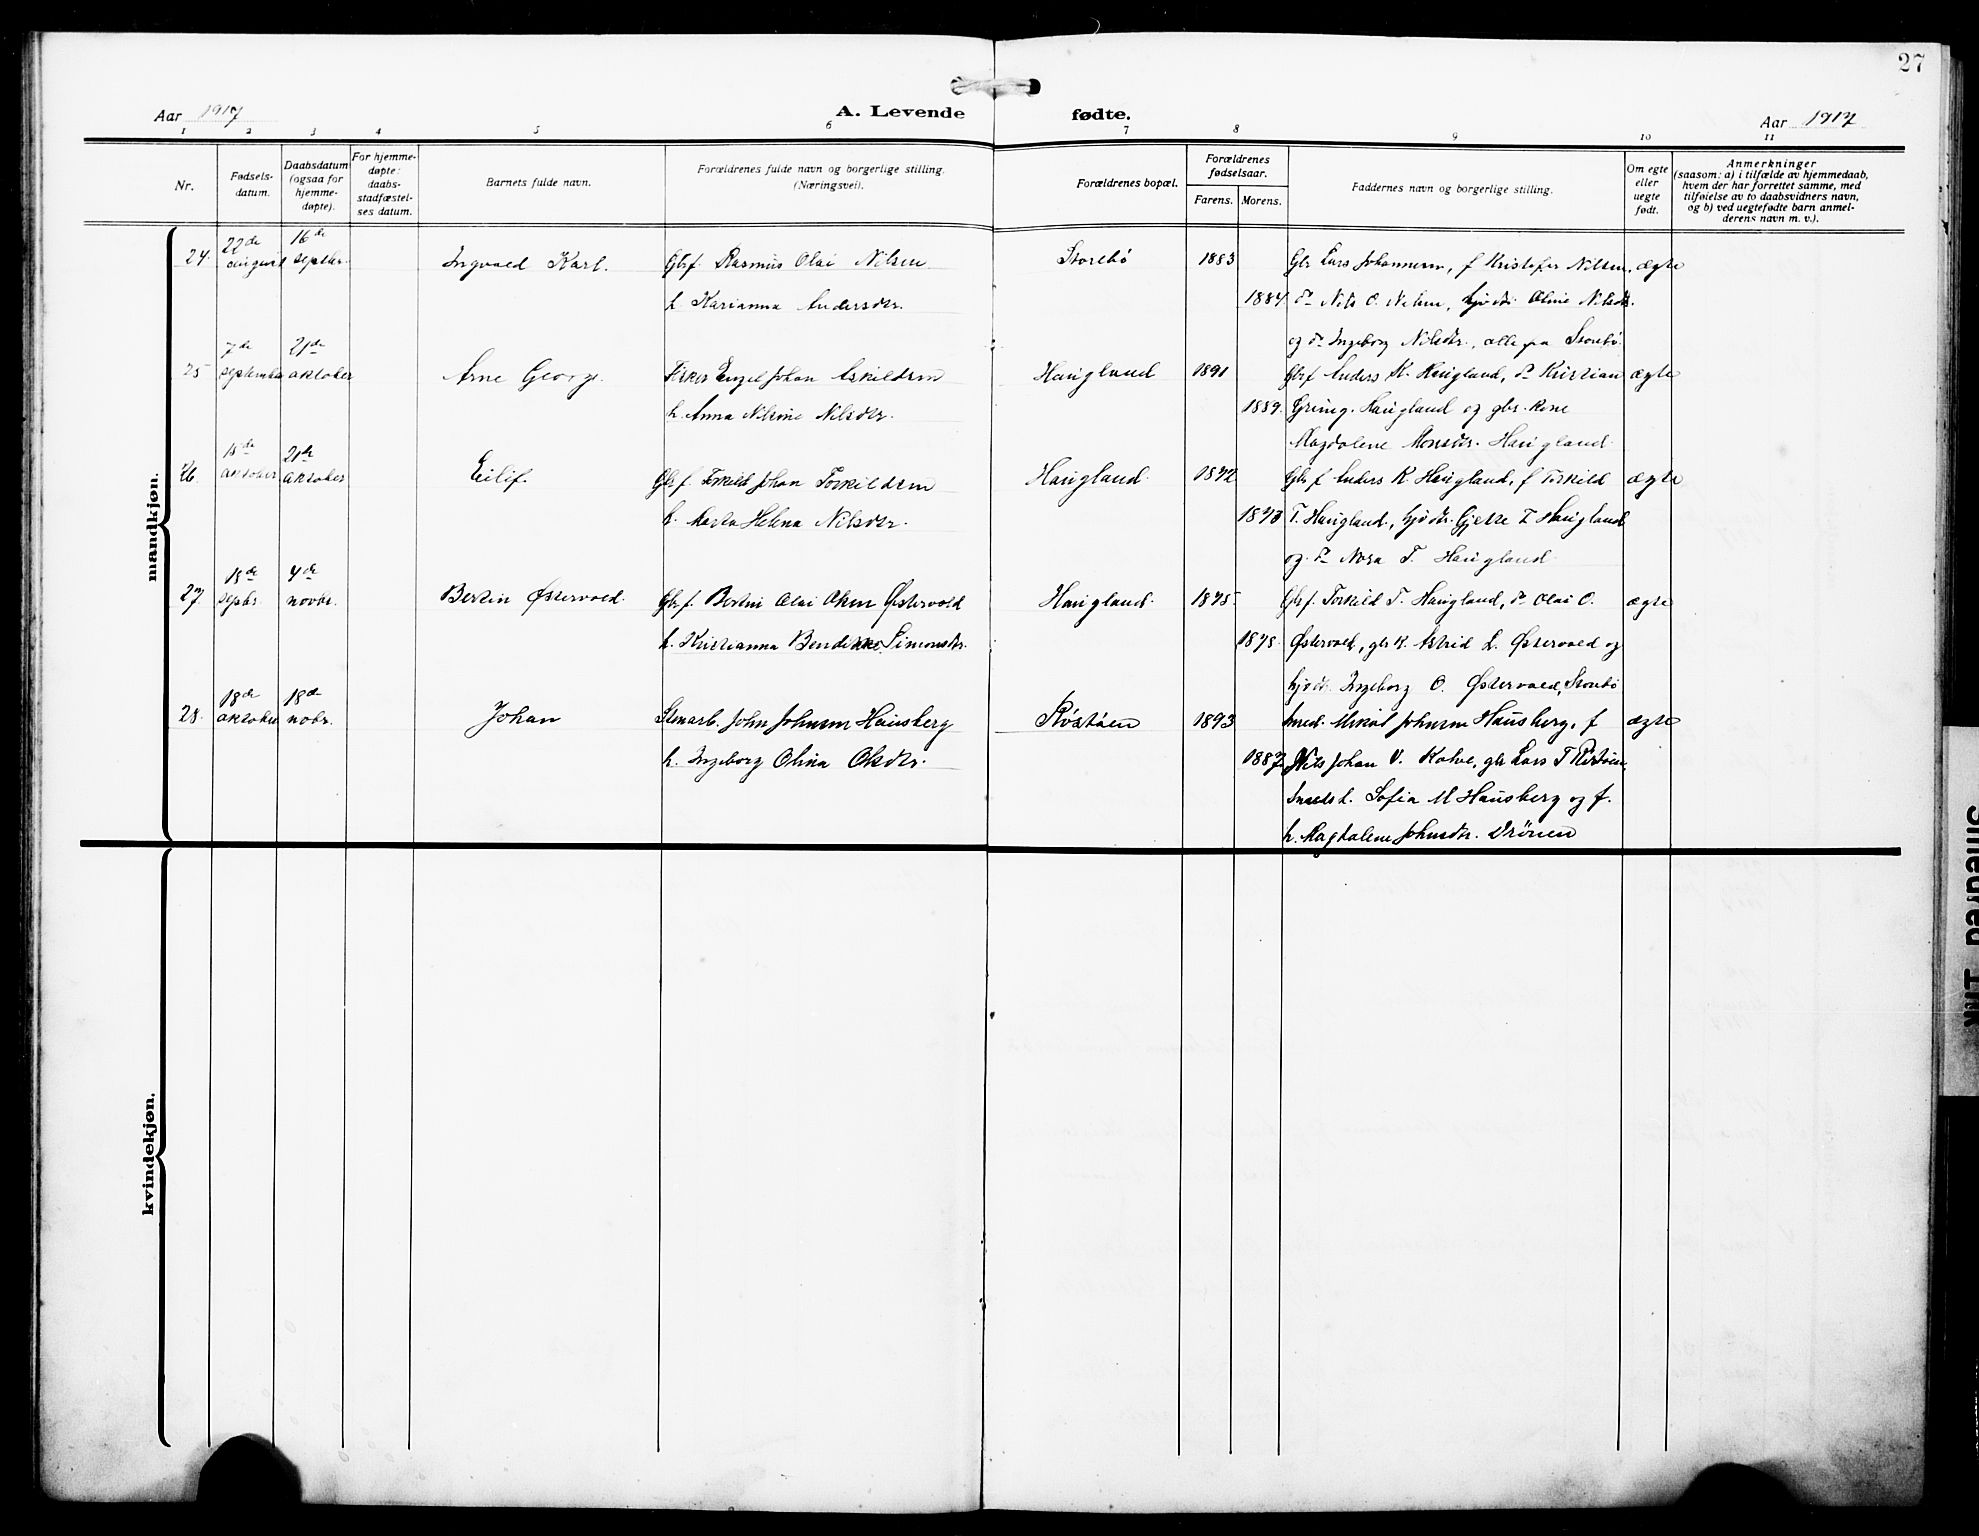 27
Aar 1917
A. Levende fødte.
Aar 1917
1 2 3 4 5 6 7 8 9 10 11
Nr.
Fødsels-
datum.
Daabsdatum
(ogsaa for
hjemme-
døpte).
For hjemme-
døpte:
daabs-
stadfæstel-
ses datum.
Barnets fulde navn.
Forældrenes fulde navn og borgerlige stilling.
(Næringsvei).
Forældrenes bopæl.
Forældrenes
fødselsaar.
Farens. Morens.
Faddernes navn og borgerlige stilling.
Om egte
eller
uegte
født.
Anmerkninger
(saasom: a) i tilfælde av hjemmedaab,
hvem der har forrettet samme, med
tilføielse av to daabsvidners navn,
og b) ved uegtefødte barn anmel-
derens navn m. v.).
mandkjøn.
22de 16de
24. august septbr. Ingvald Karl. Gbrf. Rasmus Olai Nilsen Storebø 1883 Gbr Lars Johannesen, f Kristofer Nilsen, ægte
h. Karianna Andersdtr. 1884 do Nils O. Nilsen, Gjødtr. Oline Nilsdtr.
og do Ingeborg Nilsdtr., alle fra Storebø
7de 21de
25 september oktober Arne Georg. Fisker Engel Johan Askildsen Haugland 1891 Gbrf Anders K. Haugland, do Kristian ægte
h. Anna Nilsine Nilsdtr. 1889. Grimg. Haugland og gbr. kone
Magdalene Monsdtr. Haugland
15de 21de
26. oktober oktober Eilif. Gbrf. Torkild Johan Torkildsen Haugland. 1872 Gbrf Anders K. Haugland, f Torkild ægte
h. Marta Helena Nilsdtr. 1873 T. Haugland, Gjødtr. Gjerte T Haugland
og do Nora T. Haugland.
18de 4de
27. septbr. novbr. Bertin Østervold. Gbrf. Bertin Olai Olsen Østervold Haugland. 1875. Gbrf. Torkild T. Haugland, do Olai O. ægte
h. Kristianna Bendikke Simonsdtr. 1878. Østervold, gbr k. Astrid L. Østervold og
Gjødtr. Ingeborg O. Østervold, Storebø
18de 18de
28. oktober nobr. Johan Stenarb. John Johnsen Hausberg Röstöen 1893 Smed. Mikal Johnsen Hausberg, f ægte
h. Ingeborg Olina Olsdtr. 1887. Nils Johan V. Kalve, gbr Lars T Röstöen,
Smeds h. Sofia M Hausberg og f.
h. Magdalene Johnsdtr. Drönen
kvindekjøn.